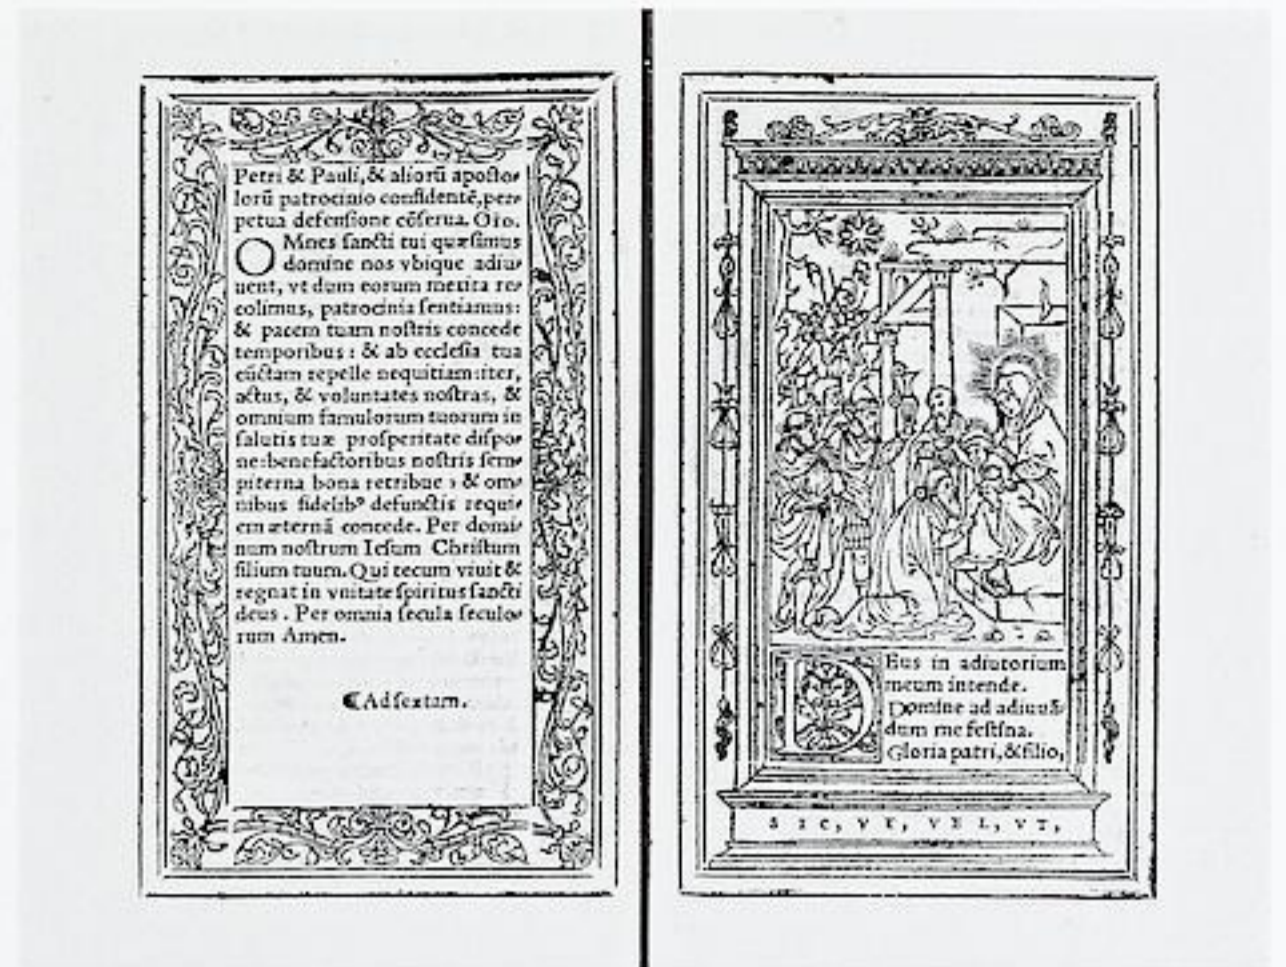 Petri & Pauli, & aliorū aposto-
lorū patrocinio confidentē, per-
petua defensione cōserua. Oro.
OMnes sancti tui quæsimus
domine nos vbique adiu-
uent, vt dum eorum merita re-
colimus, patrocinia sentiamus:
& pacem tuam nostris concede
temporibus: & ab ecclesia tua
cūctam repelle nequitiam: iter,
actus, & voluntates nostras, &
omnium famulorum tuorum in
salutis tuæ prosperitate dispo-
ne: benefactoribus nostris sem-
piterna bona retribue: & om-
nibus fidelibꝰ defunctis requi-
em æternā concede. Per domi-
num nostrum Iesum Christum
filium tuum. Qui tecum viuit &
regnat in vnitate spiritus sancti
deus. Per omnia secula seculo-
rum Amen.
¶Ad sextam.
DEus in adiutorium
meum intende.
Domine ad adiuuā-
dum me festina.
Gloria patri, & filio,
SIC, VT, VEL, VT,